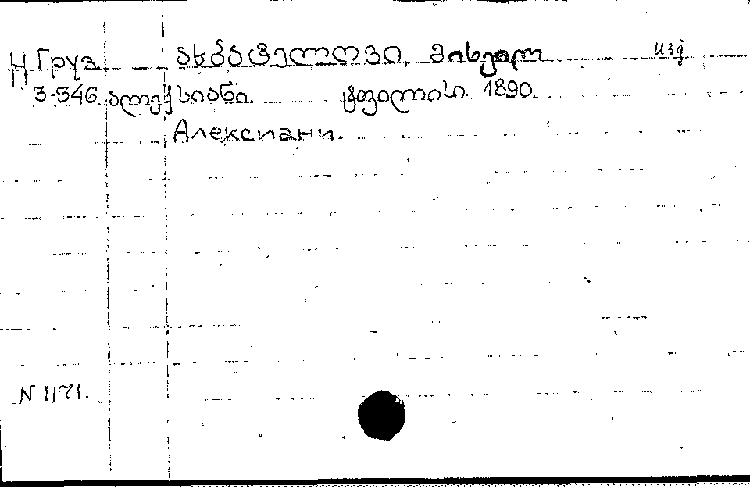 Н Груз ახპატელოვი, მიხეილ изд
3-546 ალექსიანი. ტფილისი. 1890.
Алексиани.
N 1171.